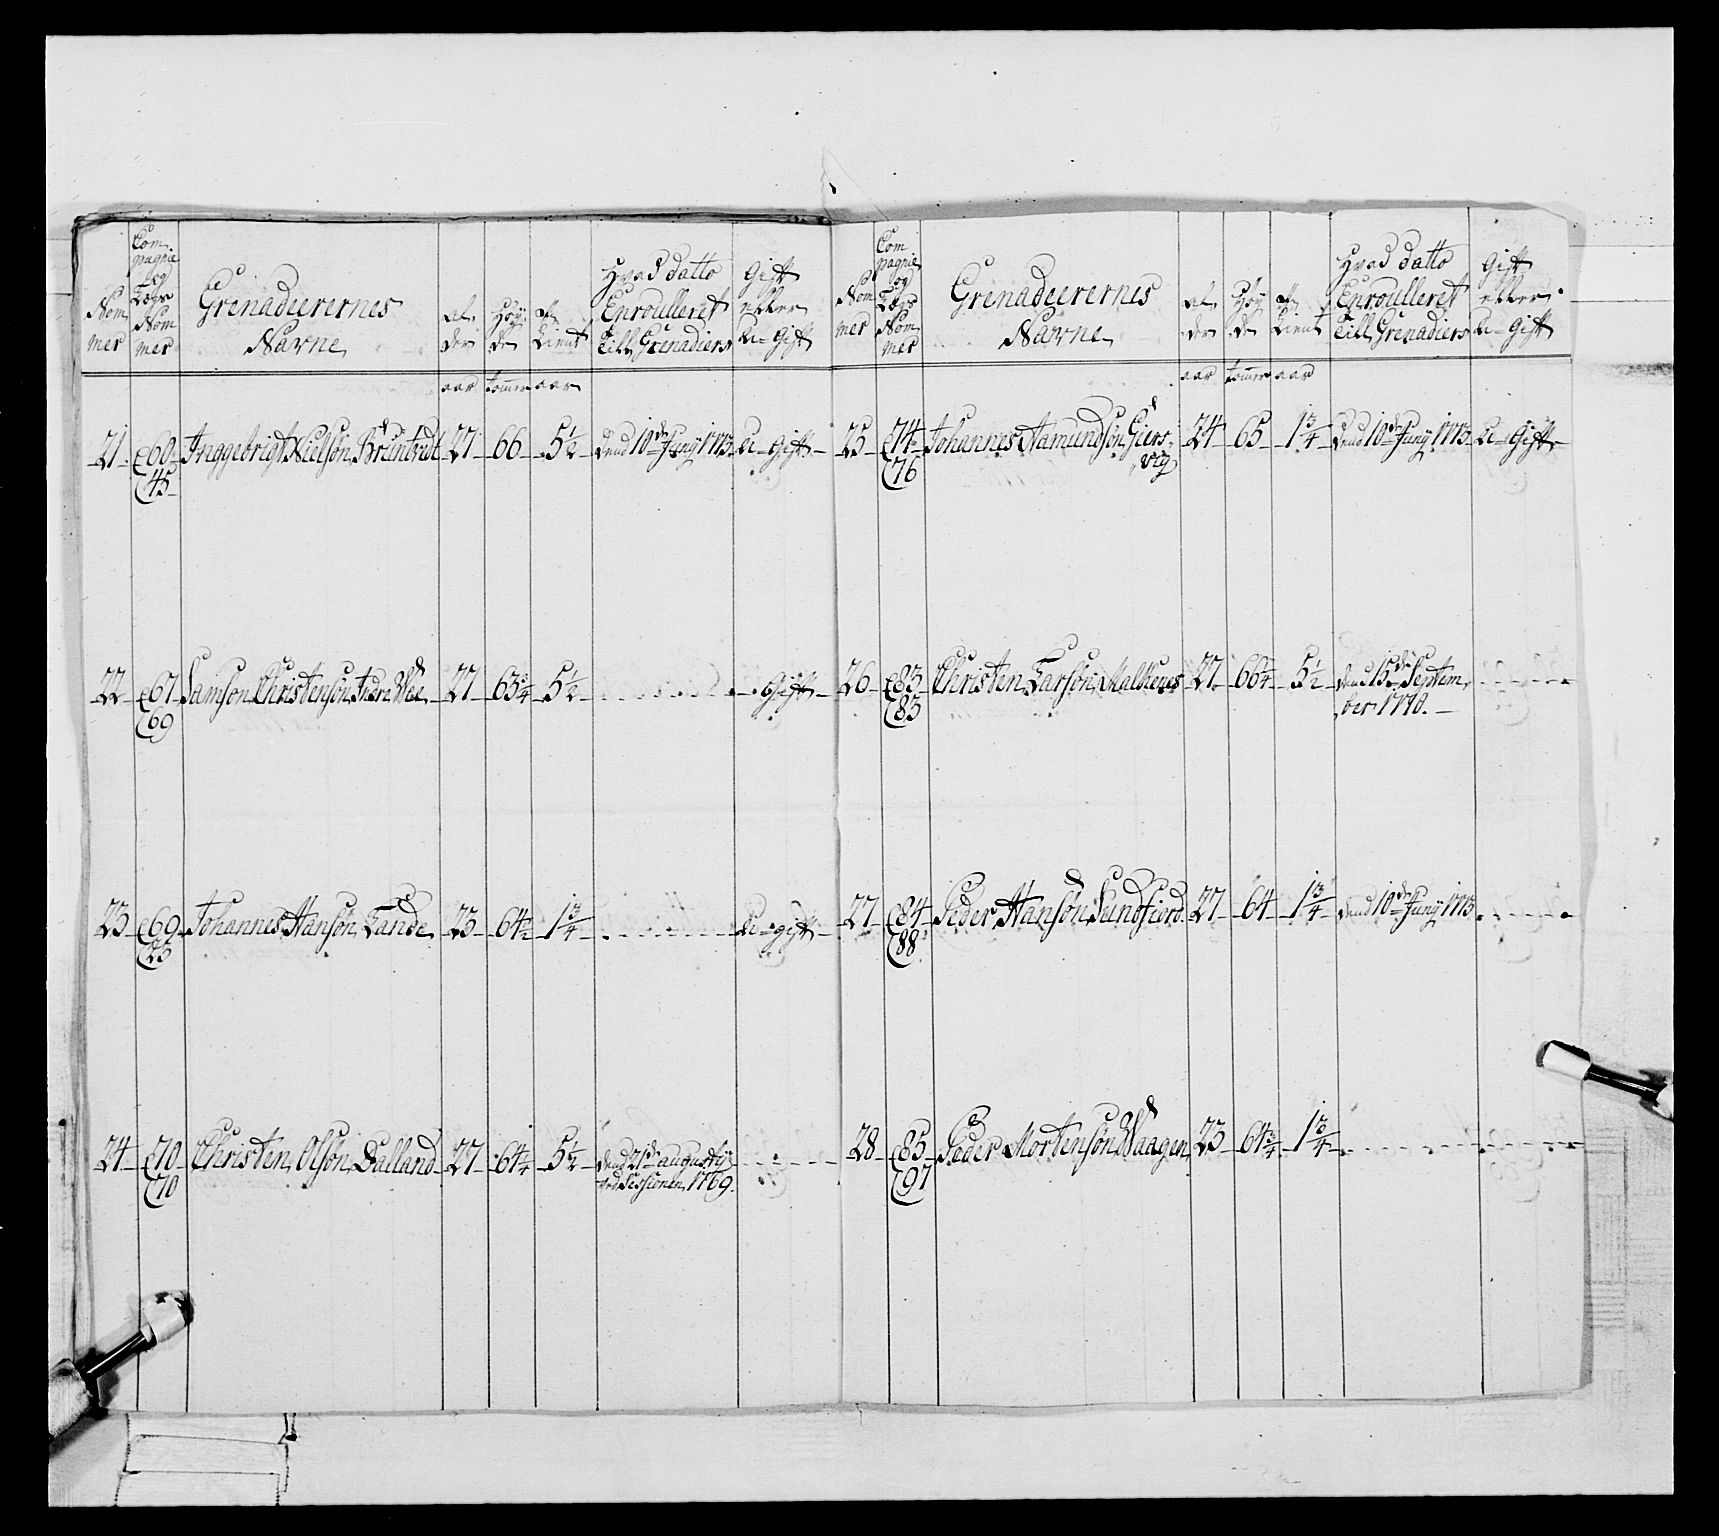 Nom
mer
Com
pagnie
og
Lægs
Nom
mer
Grenadeerernes
Navne
al
der
Høy
de
tient
Hvad datto
Enroulleret
till Grenadiers
Gift
eller
U-Gift
aar tommer aar
21 60 45 Inggebrigt Nielsøn Bruntvedt 27 66 5 1/2 dend 10de Juny 1773 U-Gift
22 67 69 Samson Christensøn Indre Vee 27 63 3/4 5 1/2 Gift
23 69 23 Johannes Hansøn Lande 23 64 1/2 1 3/4 U-gift
24 70 70 Christen Olsøn Dalland 27 64 1/4 5 1/2 dend 21de augusty
ved Sessionen 1769.
Nom
mer
Com
pagnie
og
Lægs
Nom
mer
Grenadeerernes
Navne
al
der
Høy
de
tient
Hvad datto
Enroulleret
till Grenadiers
Gift
eller
U-Gift
aar tommer aar
25 74 76 Johannes Aamundsøn Giers
vig 24 65 1 3/4 dend 10de Juny 1773 U-Gift
26 83 83 Christen Larsøn Malkenes 27 66 1/4 5 1/2 dend 15de Septem
ber 1770.
27 84 88 Peder Hansøn Sundfiord 27 64 1 3/4 dend 10de Juny 1773
28 85 97 Peder Mortensøn Waagen 23 64 3/4 1 3/4